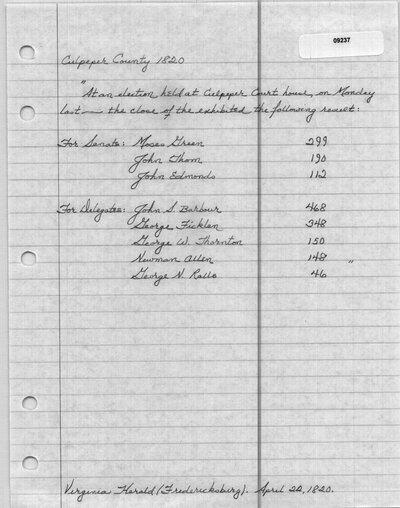 09237
Culpeper County 1820
"At an election held at Culpeper Court house, on Monday
last — the close of the exhibited the following result:
For Senate: Moses Green 299
John Thom 190
John Edmonds 112
For Delegates: John S. Barbour 468
George Ficklen 348
George W. Thornton 150
Newman Allen 148 "
George N. Ralls 46
Virginia Herald (Fredericksburg). April 22, 1820.